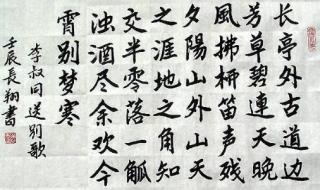 长亭外古道边
芳草碧連天晚
風拂柳笛声残
夕陽山外山天
之涯地之角知
交半零落一觚
浊酒尽余欢今
霄别梦寒
李叔同送别歌
壬辰長翔書